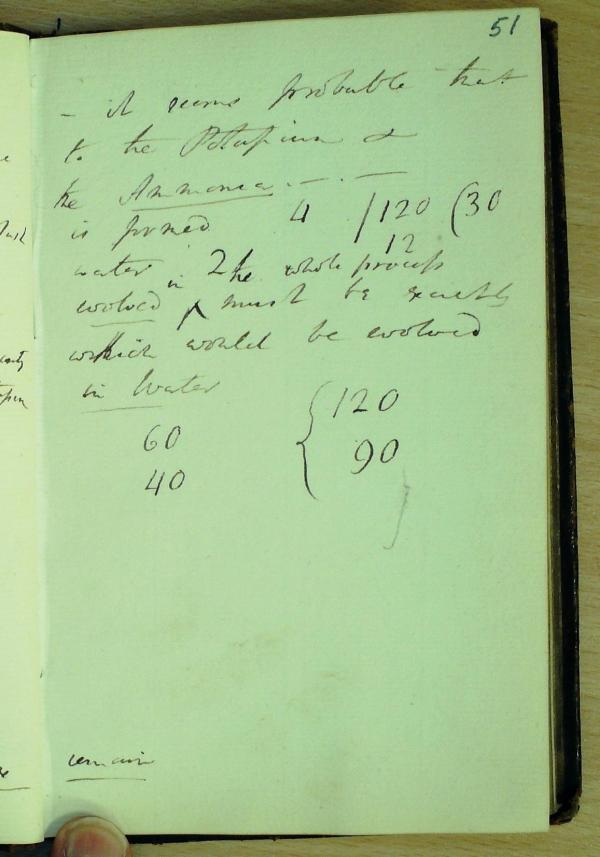 51
- it seems probable that
to the Potassium &
the Ammonia. - . -
is formed 4 /120 (30
12
water in the whole process
evolved ^ must be exactly
which would be evolved
in Water
60 { 120
40 90 }
remain